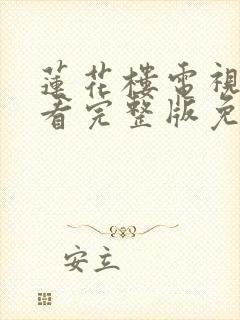 蓮花樓電視
看完整版免
安立